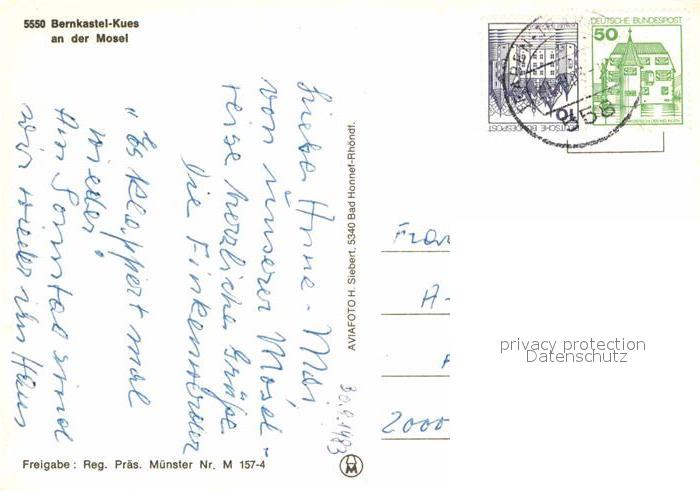 5550 Bernkastel-Kues
an der Mosel
DEUTSCHE BUNDESPOST
10
DEUTSCHE BUNDESPOST
50
Liebe Anne-Mai
von unserer Mosel-
reise herzliche Grüße
Die Finkenwerder
"Es klappert mal
wieder"
Am Sonntag sind
wir wieder im Haus
AVIAFOTO H. Siebert, 5340 Bad Honnef-Rhöndf.
30.9.1983
Frau
A-
2000
privacy protection
Datenschutz
Freigabe: Reg. Präs. Münster Nr. M 157-4